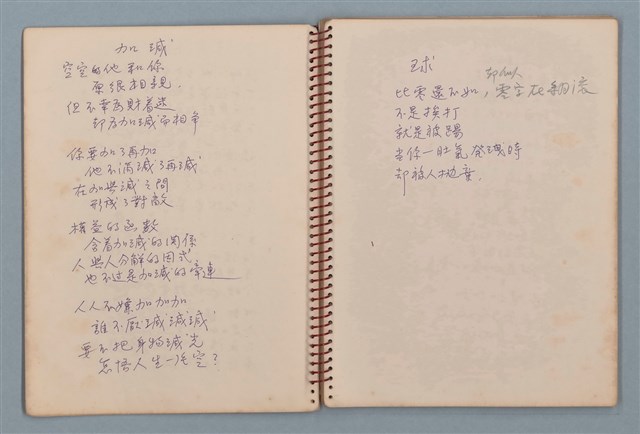 加減
空空的他和你
原很相親.
但不幸為財着迷
却為加減而相爭
你要加了再加
他不滿減了再減
在加與減之間
形成了對敵
積差的函數
含着加減的関係
人與人分解的因式
也不过是加減的牽連
人人不嫌加加加
誰不厭減減減
要不把身物減光
怎悟人生一場空?
球
却似
比零還不如，零字在翻滾
不是挨打
就是被踢
当你一肚氣發洩時
却被人抛棄.